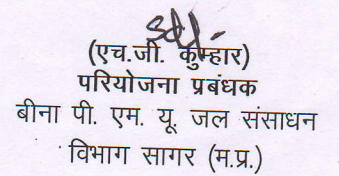 Sd/-
(एच.जी. कुम्हार)
परियोजना प्रबंधक
बीना पी. एम. यू. जल संसाधन
विभाग सागर (म.प्र.)